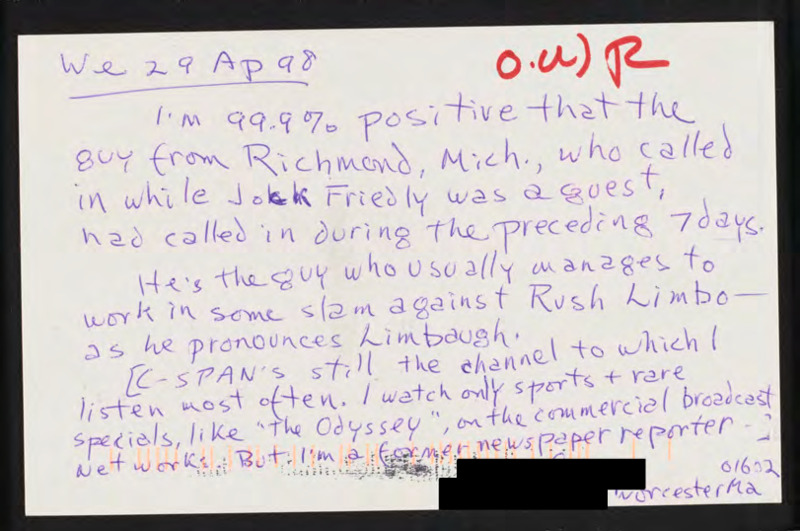 We 29 Ap 98
O.U) R
I'm 99.9% positive that the
guy from Richmond, Mich., who called
in while Jock Friedly was a guest,
had called in during the preceding 7 days.
He's the guy who usually manages to
work in some slam against Rush Limbo—
as he pronounces Limbaugh.
[C-SPAN's still the channel to which I
listen most often. I watch only sports + rare
specials, like "the Odyssey", on the commercial broadcast
networks. But I'm a former newspaper reporter -]
01602
Worcester Ma